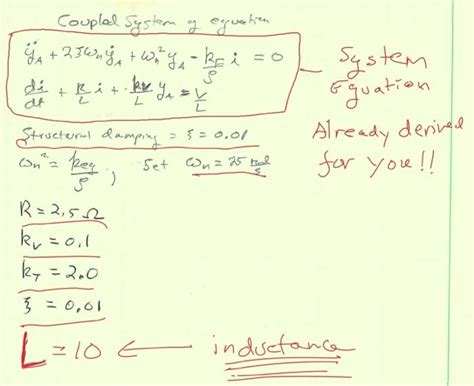 Coupled System of equation
ÿ_A + 2ξω_n ẏ_A + ω_n² y_A - k_F/ρ i = 0
di/dt + R/L i + k_v/L ẏ_A = V/L
System
Equation
Already derived
for you!!
Structural damping = ξ = 0.01
ω_n² = k_eq/ρ ; Set ω_n = 25 rad/s
R = 2.5 Ω
k_v = 0.1
k_T = 2.0
ξ = 0.01
L = 10 ← inductance